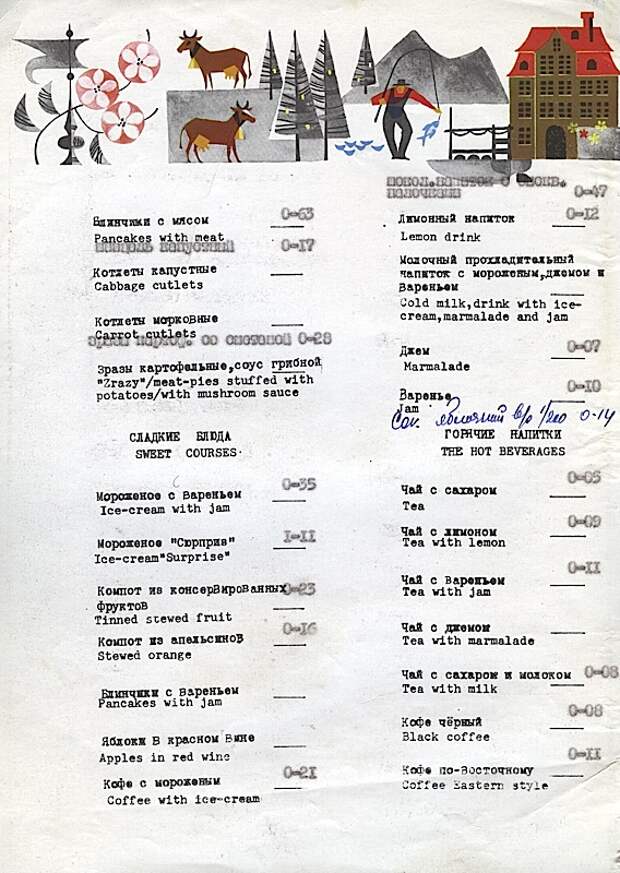 Блинчики с мясом 0-63
Pancakes with meat
капустный 0-17
Котлеты капустные
Cabbage cutlets
Котлеты морковные
Carrot cutlets
со сметаной 0-28
Зразы картофельные,соус грибной
"Zrazy"/meat-pies stuffed with
potatoes/with mushroom sauce
СЛАДКИЕ БЛЮДА
SWEET COURSES
Мороженое с Вареньем 0-35
Ice-cream with jam
Мороженое "Сюрприз" 1-11
Ice-cream"Surprise"
Компот из консервированных 0-23
фруктов
Tinned stewed fruit
Компот из апельсинов 0-16
Stewed orange
Блинчики с Вареньем
Pancakes with jam
Яблоки В красном Вине
Apples in red wine
Кофе с мороженым 0-21
Coffee with ice-cream
0-47
Лимонный напиток 0-12
Lemon drink
Молочный прохладительный
напиток с мороженым,джемом и
Вареньем
Cold milk,drink with ice-
cream,marmalade and jam
Джем 0-07
Marmalade
Варенье 0-10
Jam
Сок яблочный 0-14
ГОРЯЧИЕ НАПИТКИ
THE HOT BEVERAGES
Чай с сахаром 0-05
Tea
Чай с лимоном 0-09
Tea with lemon
Чай с Вареньем 0-11
Tea with jam
Чай с джемом
Tea with marmalade
Чай с сахаром и молоком 0-08
Tea with milk
Кофе чёрный 0-08
Black coffee
Кофе по-Восточному 0-11
Coffee Eastern style